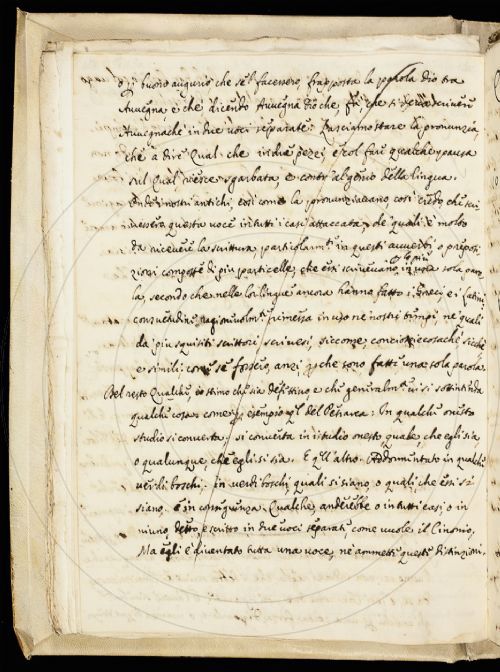 o p buono augurio che sel facessero, frapposta la parola dio tra
Auuegna, e che dicendo Auuegna dio che, fè, che si
Auuegnache in due voci separate. Lasciamo stare la pronunzia
che a dire Qual che in due pezzi e col fare qualche pausa
sul Qual riesce sgarbata, e contr'al genio della lingua.
i nostri antichi, così come la pronunziauano, così credo che
questa voce in tutti i casi attaccata, de quali è molto
da riceuere la scrittura, particolarm.te in questi auuerbi o preposi
zioni composte di piu particelle, che essi scriueuano in una sola paro
la, secondo che nelle lor lingue ancora hanno fatto i Greci e i Latini
consuetudine ragioneuolm.te rimessa in uso ne nostri tempi, ne quali
da piu squisiti scrittori scriuesi, siccome, conciossiecosache sicche
e simili: come se fossero, anzi che sono fatti una sola parola.
Del resto Qualche, io stimo che sia definito, e che generalm.te ui si sottintenda
qualche cosa: come p esempio ql del Petrarca: In qualche onesto
studio si conuerta, si conuerta in istudio onesto, quale, che egli sia
o qualunque, che egli si sia. E q.ll'altro. Addormentato in qualche
uerdi boschi, in uerdi boschi, quali si siano, o quali che essi si
siano. E in conseguenza Qualche, anderebbe o in tutti casi, o in
niuno, detto, e scritto in due voci separati, come uuole il Cinonio,
Ma egli è diuentato tutta una uoce, ne ammette queste distinzioni.